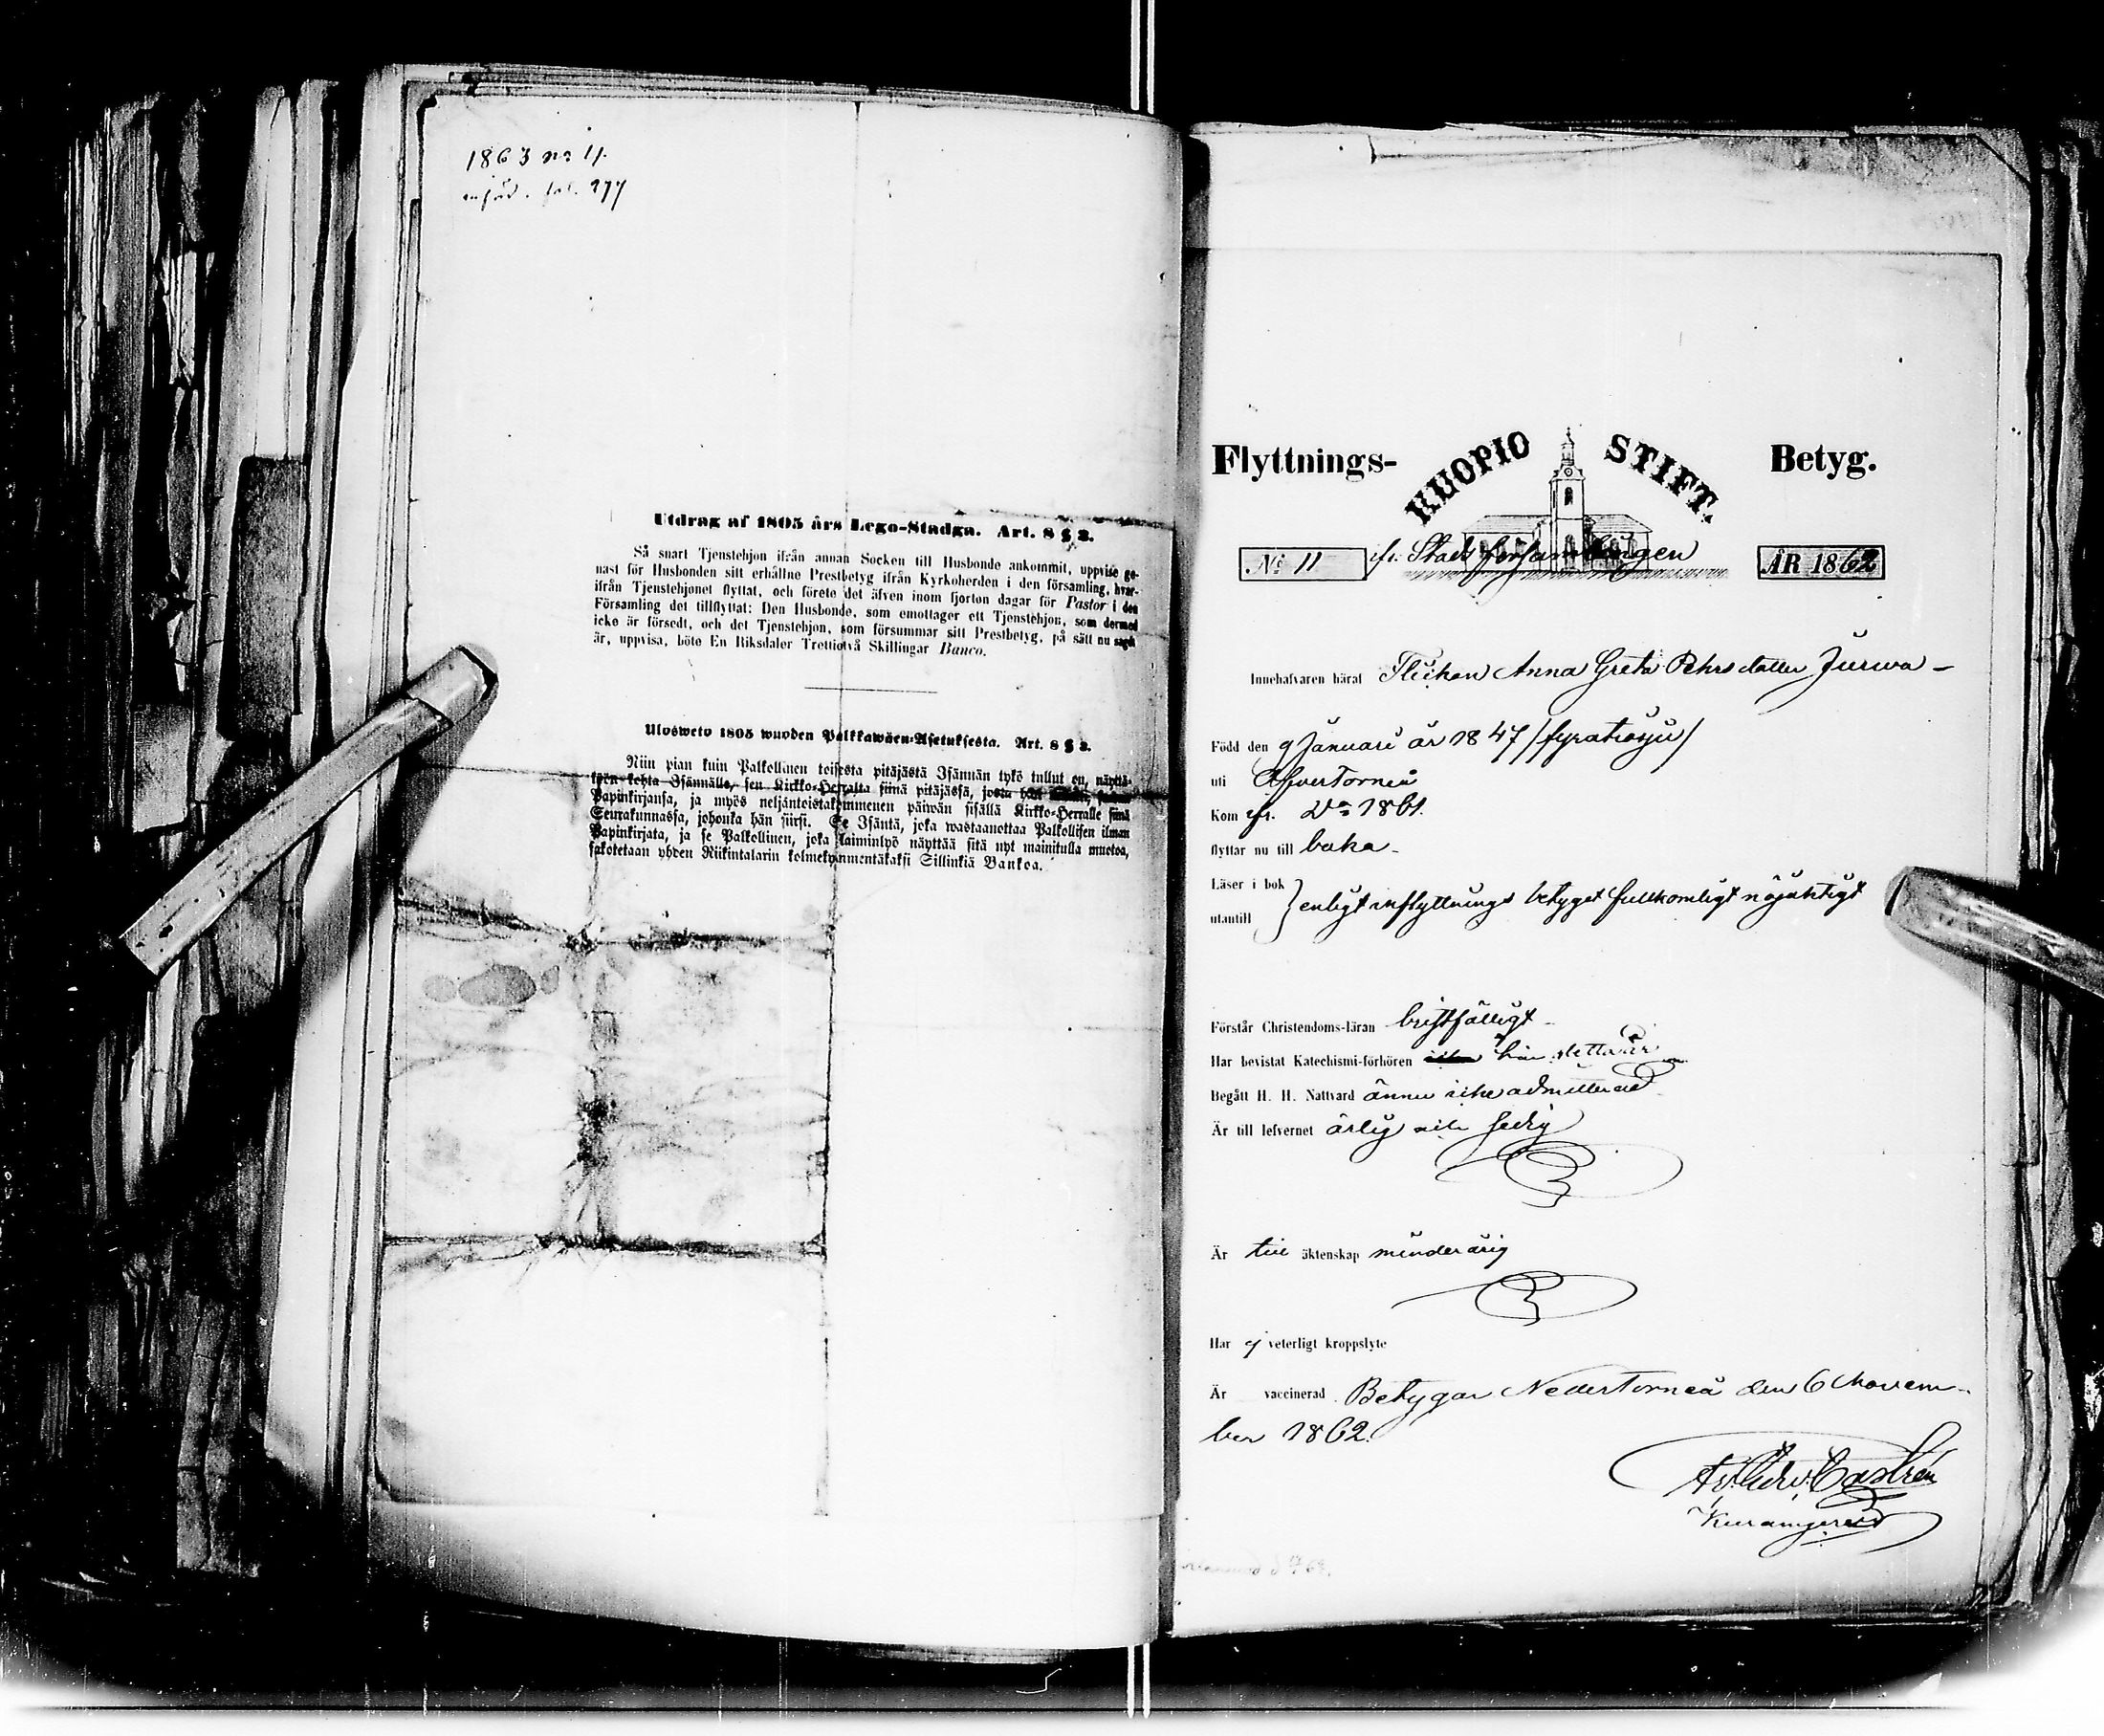 1863 no 11.
införd. fol. 277
Utdrag af 1805 års Lego-Stadga. Art. 8 § 3.
Så snart Tjenstehjon ifrån annan Socken till Husbonde ankommit, uppvise ge-
nast för Husbonden sitt erhållne Prestbetyg ifrån Kyrkoherden i den församling, hvar-
ifrån Tjenstehjonet flyttat, och förete det äfven inom fjorton dagar för Pastor i den
Församling det tillflyttat: Den Husbonde, som emottager ett Tjenstehjon, som dermed
icke är försedt, och det Tjenstehjon, som försummar sitt Prestbetyg, på sätt nu sagdt
är, uppvisa, böte En Riksdaler Trettiotvå Skillingar Banco.
Ulosweto 1805 wuoden Palkkawäen-Asetuksesta. Art. 8 § 3.
Niin pian kuin Palkollinen toisesta pitäjästä Isännän tykö tullut on, näyttä-
köön kohta Isännälle, sen Kirkko-Herralta siinä pitäjässä, josta hän
Papinkirjansa, ja myös neljäntoistakymmenen päiwän sisällä Kirkko-Herralle siinä
Seurakunnassa, johonka hän siirsi. Se Isäntä, joka wastaanottaa Palkollisen ilman
Papinkirjata, ja se Palkollinen, joka laiminlyö näyttää sitä nyt mainitulla muotoa,
sakotetaan yhden Riikintalarin kolmekymmentäkaksi Sillinkiä Bankoa.
Flyttnings- KUOPIO STIFT. Betyg.
No 11 ifr. Stads församlingen ÅR 1862
Innehafvaren häraf Flickan Anna Greta Pehrsdotter Jurwa -
Född den 9 Januari år 1847 /fyratiosju/
uti Öfver Torneå
Kom ifr. Do 1861.
flyttar nu till baka -
Läser i bok
utantill } enligt inflyttnings betyget fullkomligt nöjaktigt
Förstår Christendoms-läran bristfälligt -
Har bevistat Katechismi-förhören här detta år
Begått H. H. Nattvard ännu icke admitterad
Är till lefvernet ärlig och sedig
Är till äktenskap minderårig
Har ej veterligt kroppslyte
Är vaccinerad. Betygar NederTorneå den 6 Novem-
ber 1862.
Castrén